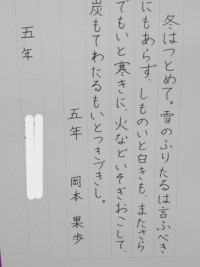 冬はつとめて。雪のふりたるは言ふべき
にもあらず、しものいと白きも、またさら
でもいと寒きに、火などいそぎおこして、
炭もてわたるもいとつきづきし。
五年　岡本　果歩
五年